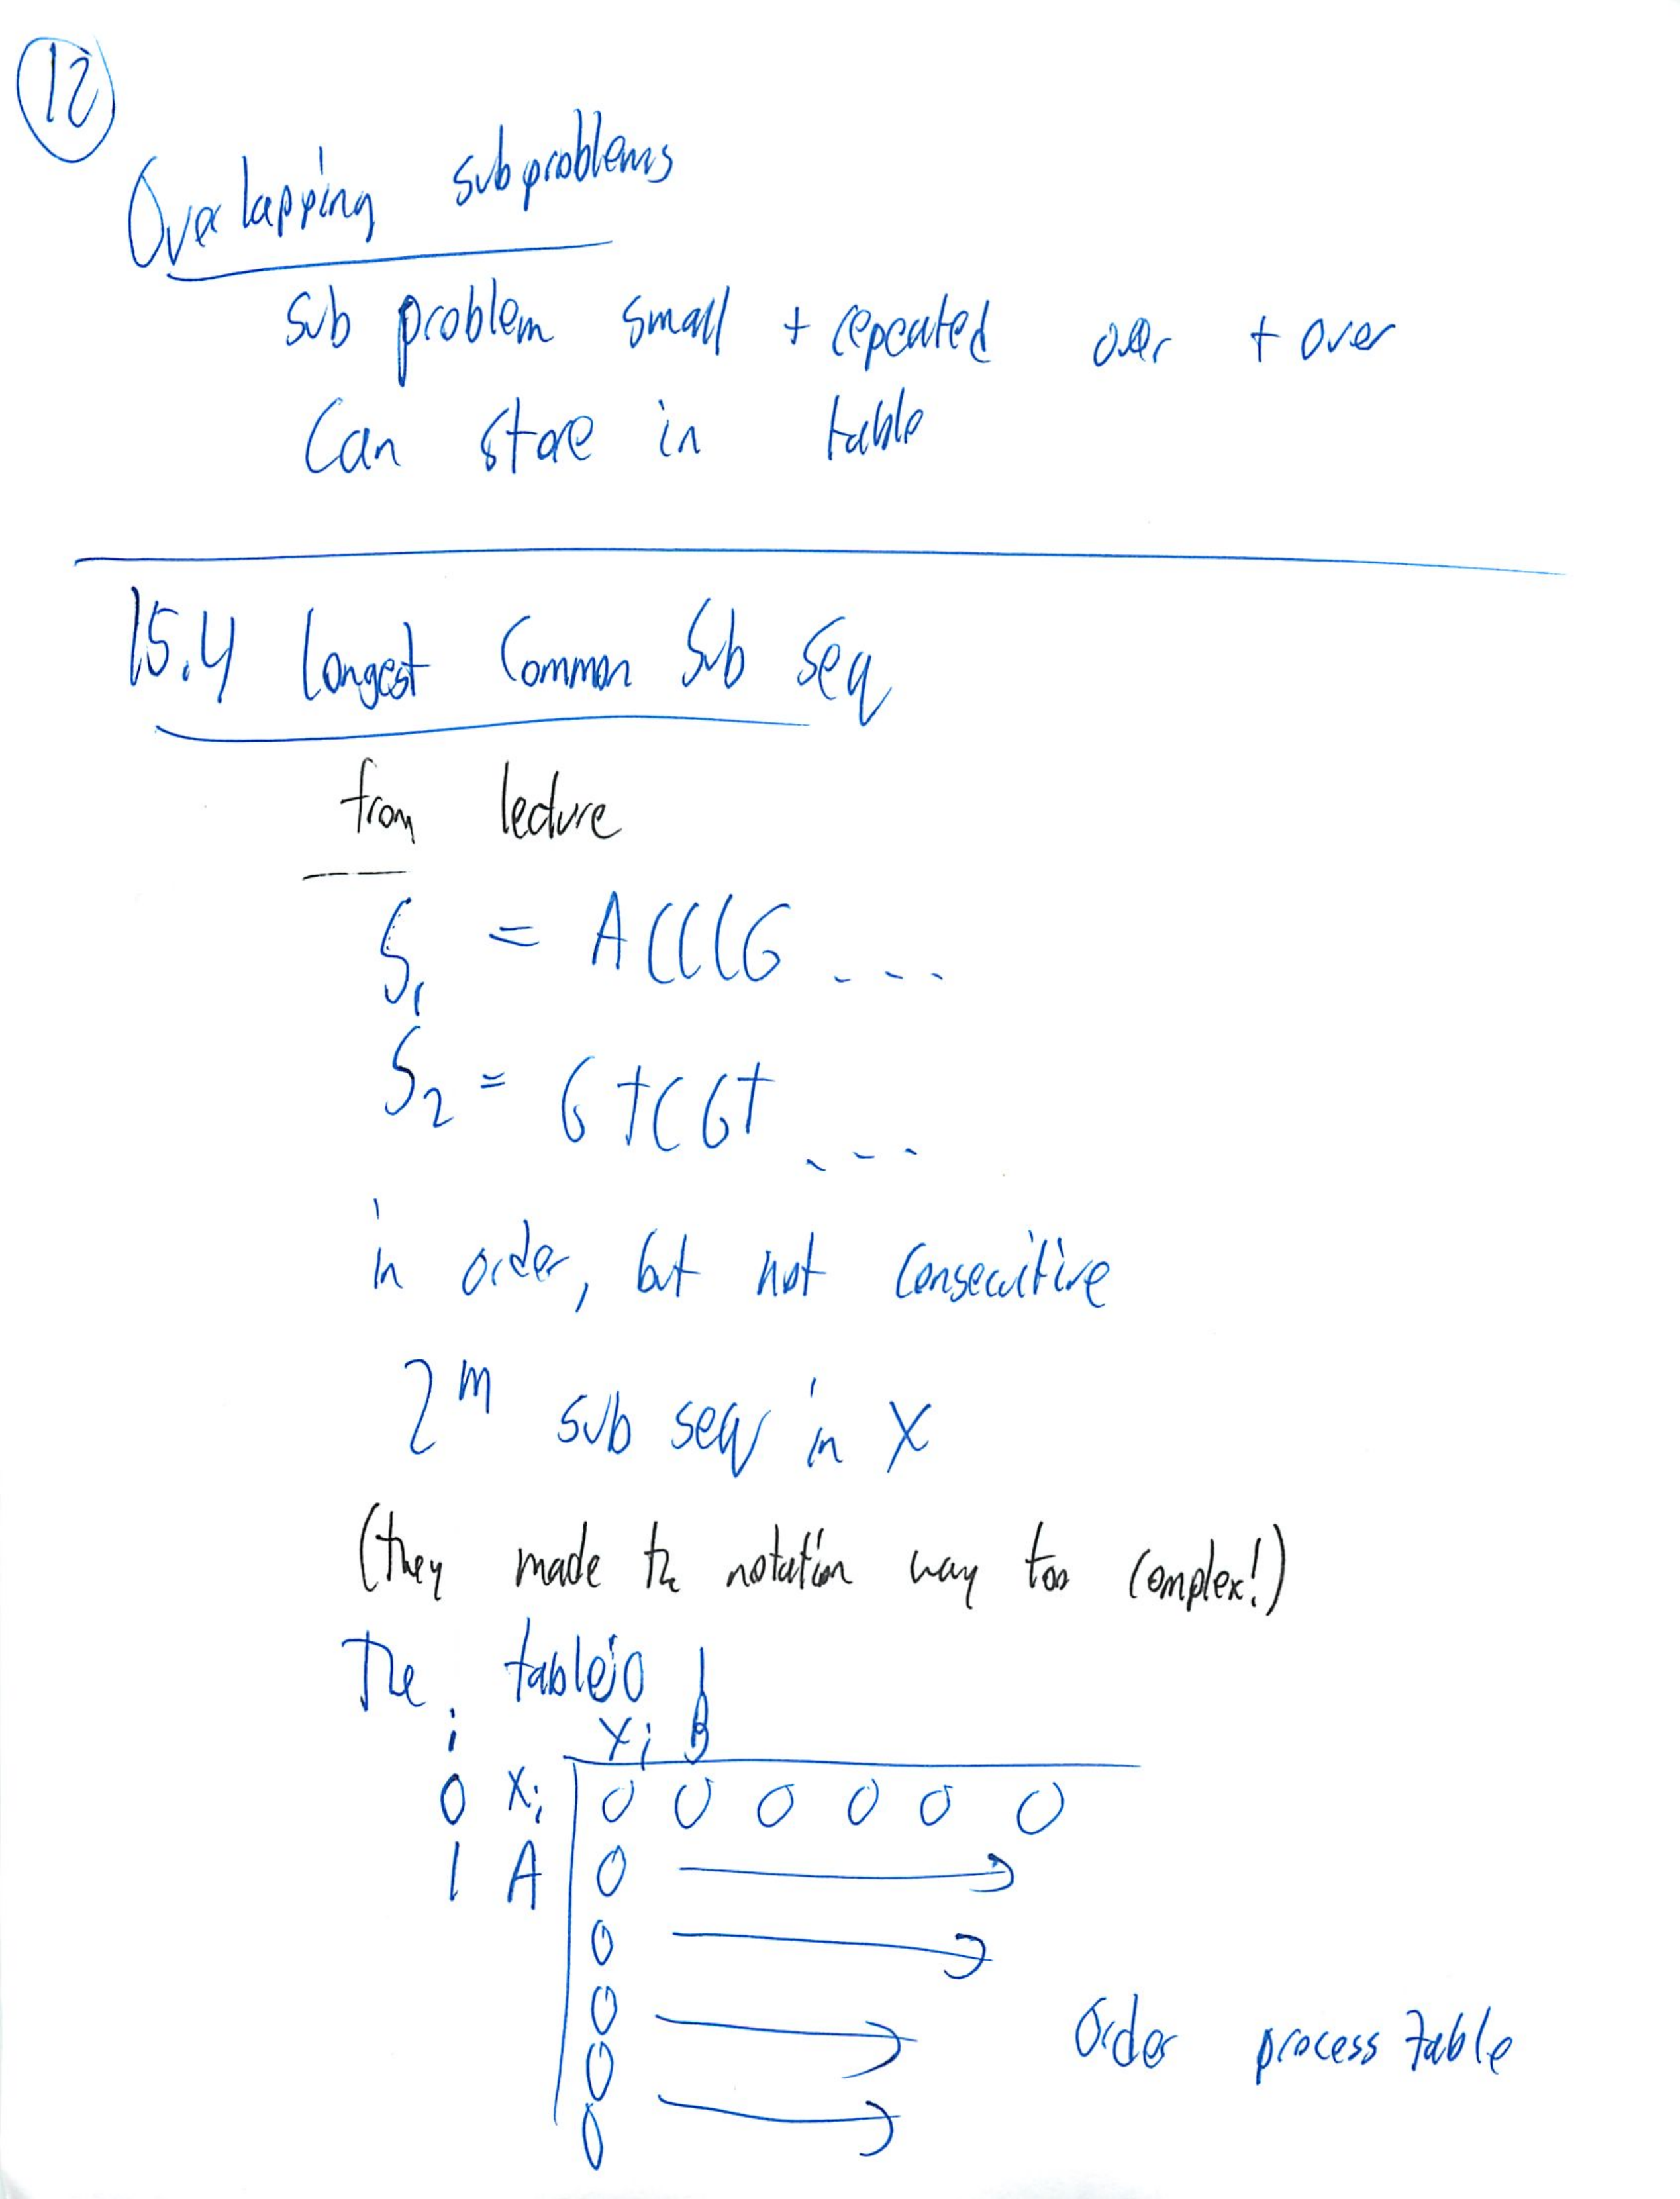 12
Overlapping subproblems
sub problem small + repeated over + over
Can store in table
15.4 Longest Common Sub Seq
from lecture
S1 = ACCCG ....
S2 = GTCGT ....
in order, but not consecuitive
2^m sub seq in X
(they made the notation way too complex!)
The table
j 0 1
i Yj B
0 Xi 0 0 0 0 0 0
1 A 0
0
0
0
0
Order process table